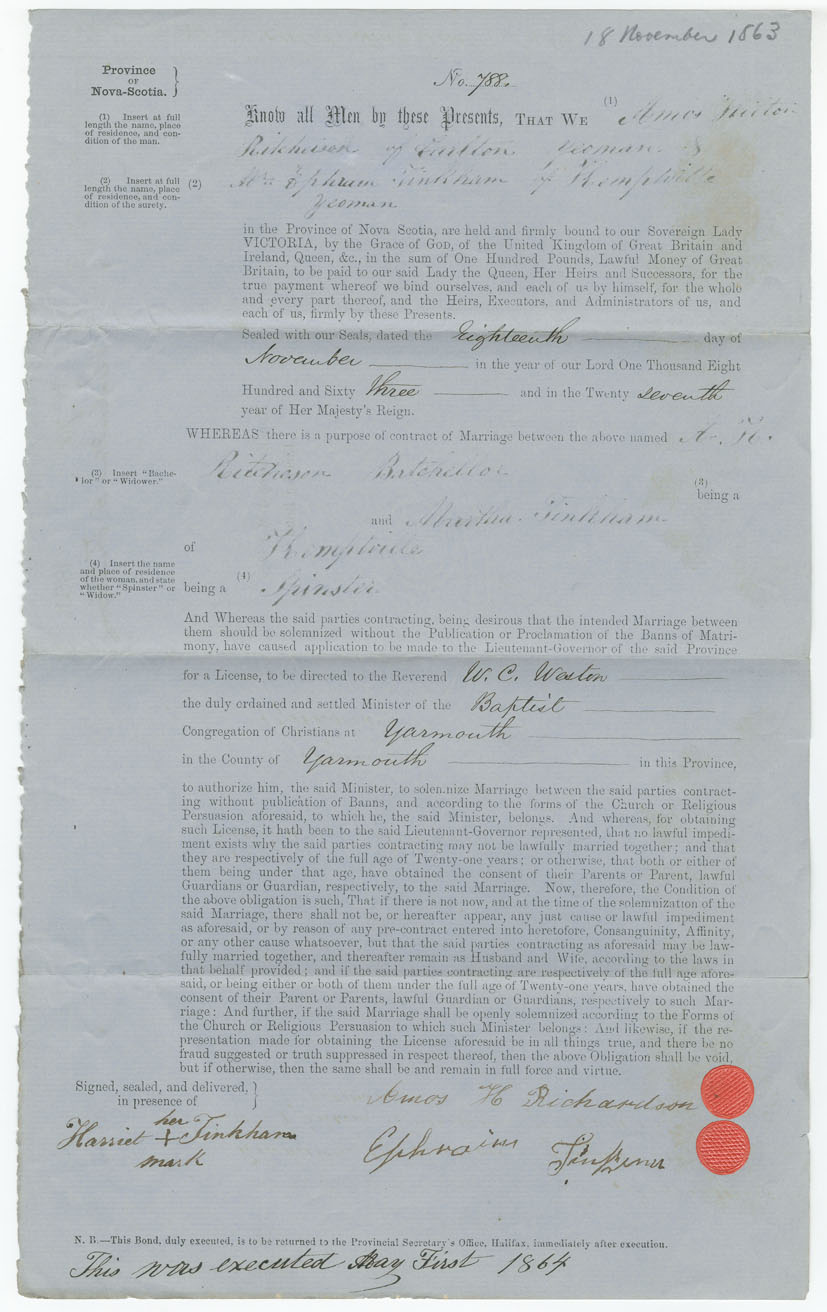 18 November 1863
Province
OF
Nova-Scotia.
No. 788.
(1) Insert at full
length the name, place
of residence, and con-
dition of the man.
Know all Men by these Presents, THAT WE (1) Amos Hilton
of Carlton yeoman &
(2) Insert at full
length the name, place
of residence, and con-
dition of the surety.
(2) Ephrum Tinkham of Kemptville
yeoman
in the Province of Nova Scotia, are held and firmly bound to our Sovereign Lady
VICTORIA, by the Grace of GOD, of the United Kingdom of Great Britain and
Ireland, Queen, &c., in the sum of One Hundred Pounds, Lawful Money of Great
Britain, to be paid to our said Lady the Queen, Her Heirs and Successors, for the
true payment whereof we bind ourselves, and each of us by himself, for the whole
and every part thereof, and the Heirs, Executors, and Administrators of us, and
each of us, firmly by these Presents.
Sealed with our Seals, dated the Eighteenth day of
November in the year of our Lord One Thousand Eight
Hundred and Sixty three and in the Twenty seventh
year of Her Majesty's Reign.
WHEREAS there is a purpose of contract of Marriage between the above named A. H.
(3) Insert "Bache-
lor" or "Widower."
Ritcheson Batchellor
(3)
being a
and Martha Tinkham
of Kemptville
(4) Insert the name
and place of residence
of the woman, and state
whether "Spinster" or
"Widow."
being a (4) Spinster
And Whereas the said parties contracting, being desirous that the intended Marriage between
them should be solemnized without the Publication or Proclamation of the Banns of Matri-
mony, have caused application to be made to the Lieutenant-Governor of the said Province
for a License, to be directed to the Reverend W. C. Weston
the duly ordained and settled Minister of the Baptist
Congregation of Christians at Yarmouth
in the County of Yarmouth in this Province,
to authorize him, the said Minister, to solemnize Marriage between the said parties contract-
ing without publication of Banns, and according to the forms of the Church or Religious
Persuasion aforesaid, to which he, the said Minister, belongs. And whereas, for obtaining
such License, it hath been to the said Lieutenant-Governor represented, that no lawful impedi-
ment exists why the said parties contracting may not be lawfully married together; and that
they are respectively of the full age of Twenty-one years; or otherwise, that both or either of
them being under that age, have obtained the consent of their Parents or Parent, lawful
Guardians or Guardian, respectively, to the said Marriage. Now, therefore, the Condition of
the above obligation is such, That if there is not now, and at the time of the solemnization of the
said Marriage, there shall not be, or hereafter appear, any just cause or lawful impediment
as aforesaid, or by reason of any pre-contract entered into heretofore, Consanguinity, Affinity,
or any other cause whatsoever, but that the said parties contracting as aforesaid may be law-
fully married together, and thereafter remain as Husband and Wife, according to the laws in
that behalf provided; and if the said parties contracting are respectively of the full age afore-
said, or being either or both of them under the full age of Twenty-one years, have obtained the
consent of their Parent or Parents, lawful Guardian or Guardians, respectively to such Mar-
riage: And further, if the said Marriage shall be openly solemnized according to the Forms of
the Church or Religious Persuasion to which such Minister belongs: And likewise, if the re-
presentation made for obtaining the License aforesaid be in all things true, and there be no
fraud suggested or truth suppressed in respect thereof, then the above Obligation shall be void,
but if otherwise, then the same shall be and remain in full force and virtue.
Signed, sealed, and delivered,
in presence of
Amos H Richardson
her
Harriet + Tinkham
mark
Ephraim
N. B.—This Bond, duly executed, is to be returned to the Provincial Secretary's Office, Halifax, immediately after execution.
This was executed May First 1864